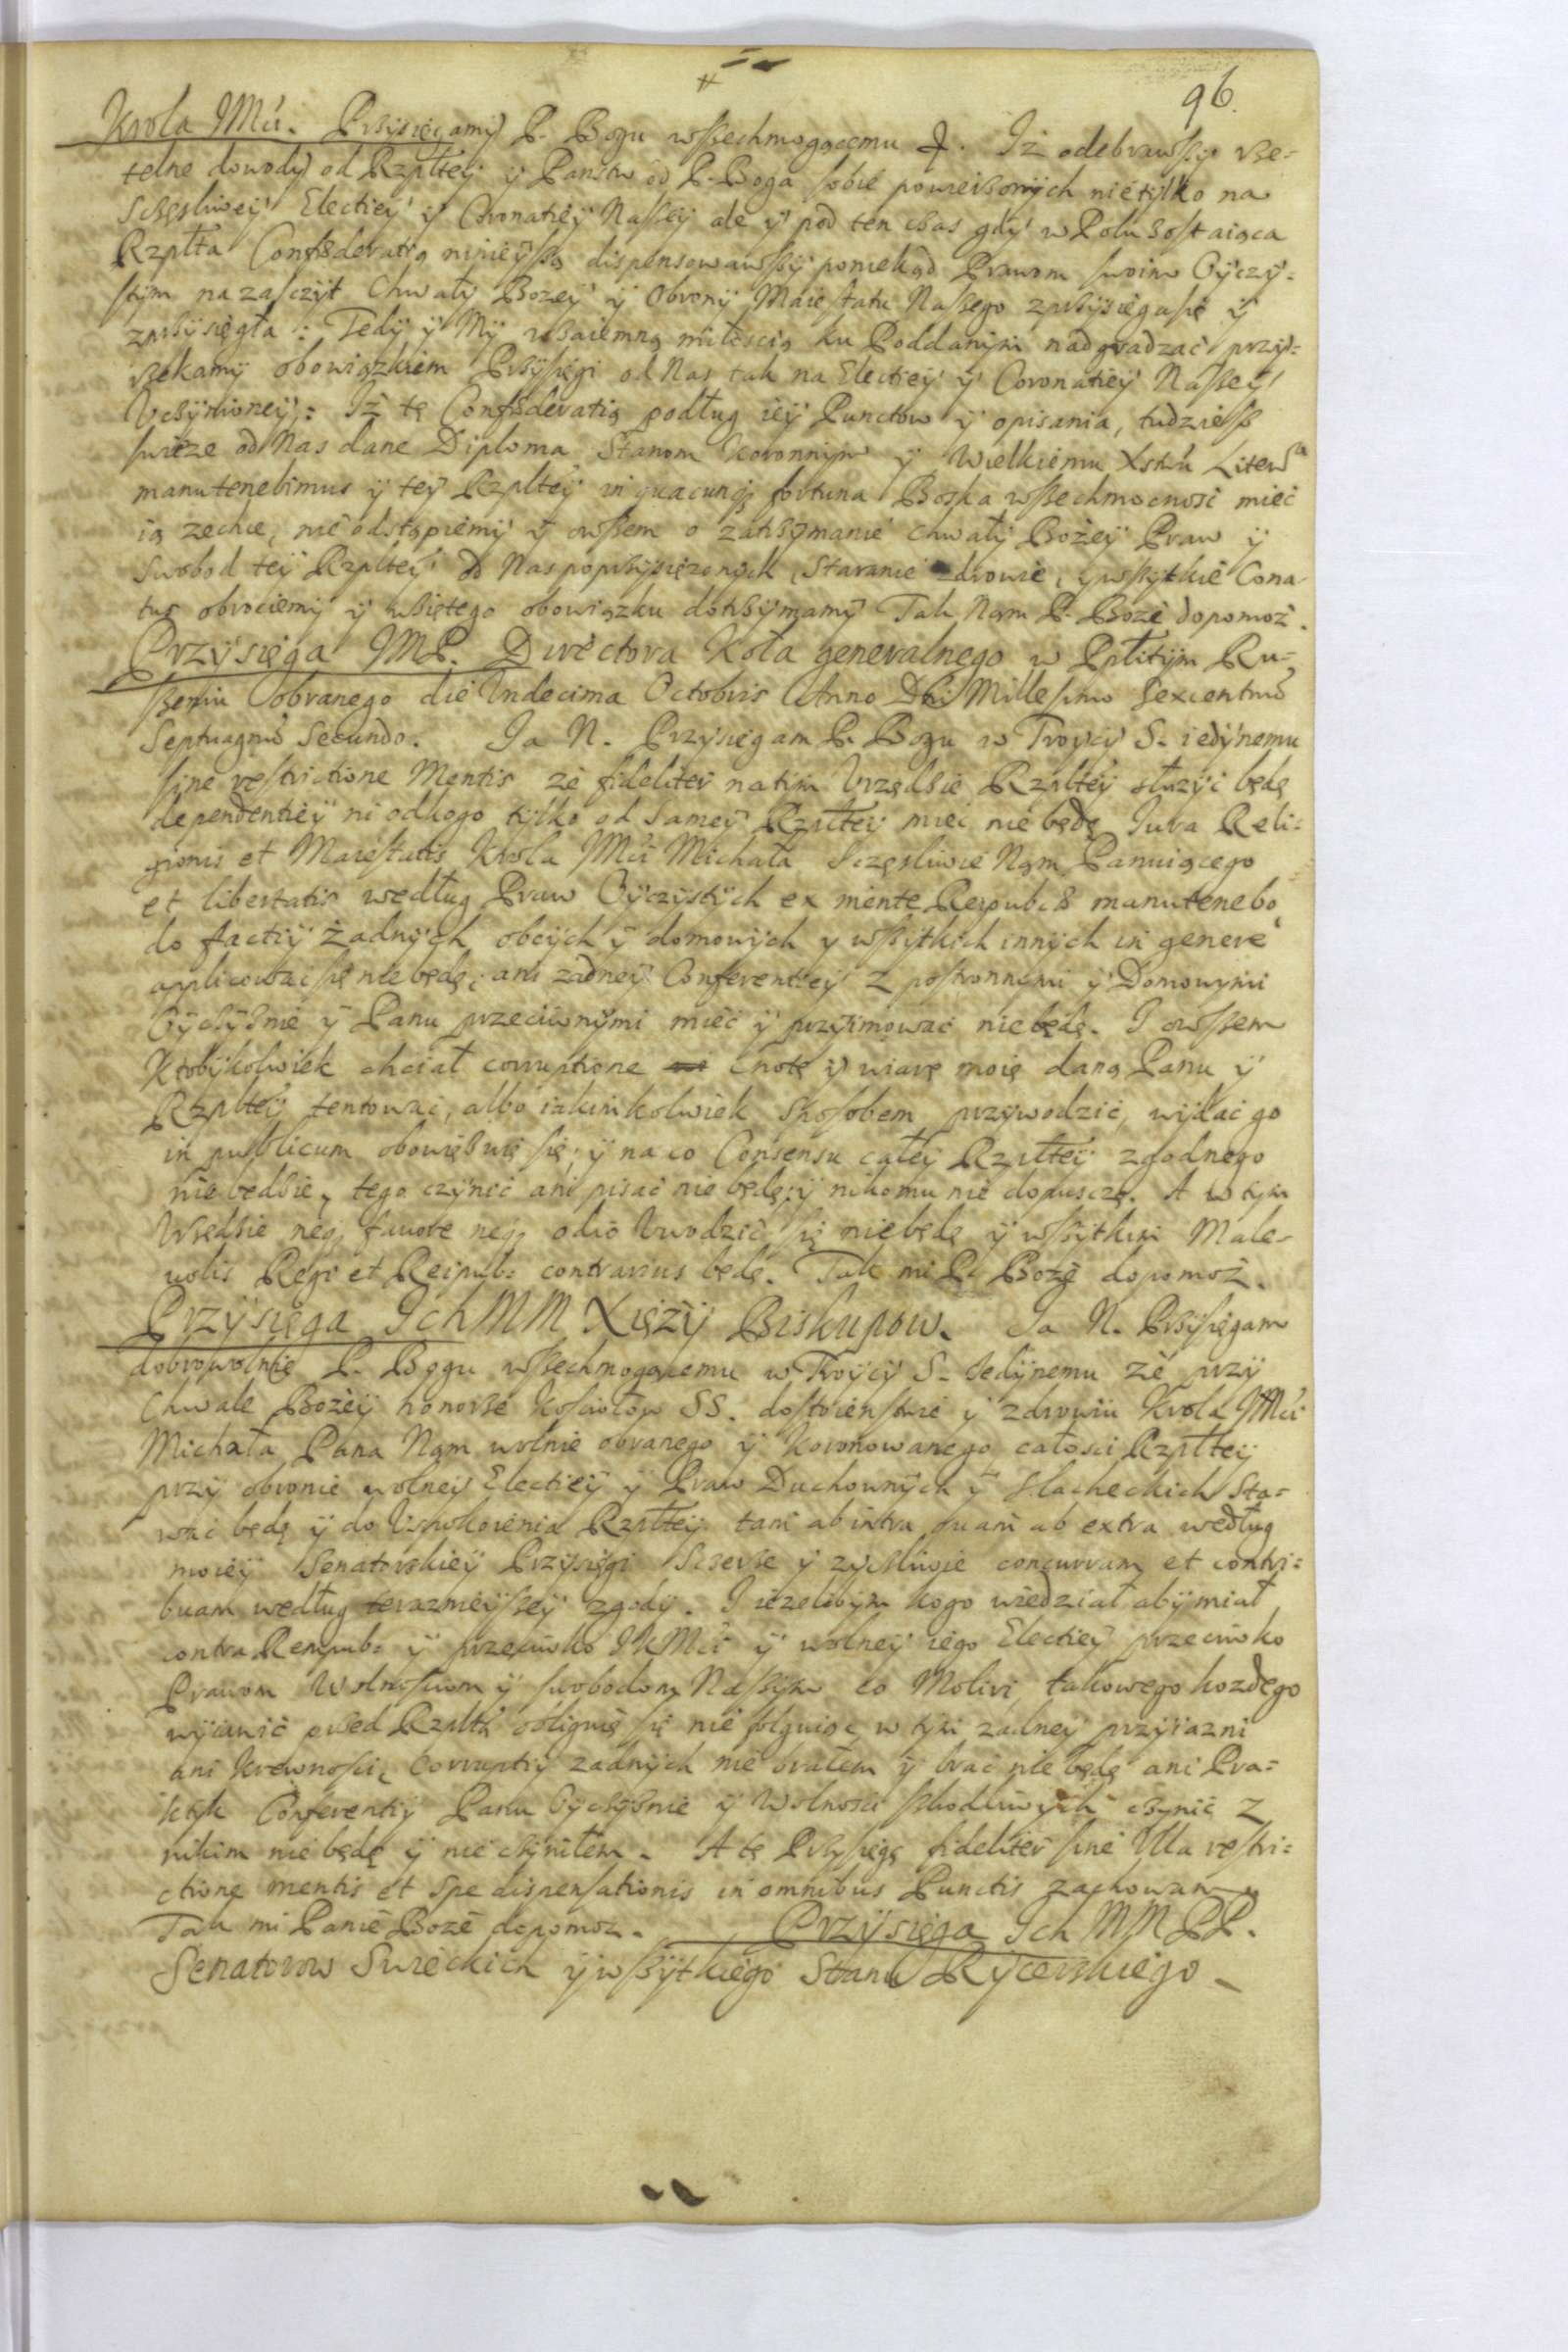 96.
Krola JMći. Przysięgamÿ P. Bogu wßechmogącemu &. Iż odebrawßy rze-
telne dowodÿ od Rzpltey ÿ Panstw od P. Boga sobie powierzonÿch nietÿlko na
Sczęsliweÿ Electieÿ ÿ Coronatieÿ Naßeÿ ale ÿ pod ten czas gdÿ w Polu zostaiąca
Rzplta Confæderatią ninieÿßą dispensowawßÿ poniekąd Prawom swoim Oÿczÿ-
stÿm na zasczÿt Chwałÿ Bożeÿ ÿ Obronÿ Maiestatu Naßego zprzÿsięgła się ÿ
zprzÿsięgła: Tedÿ ÿ Mÿ wzaiemną miłoscią ku Poddanÿm nadgradzać przÿ-
rzekamÿ obowiązkiem Przÿsięgi od Nas tak na Electieÿ ÿ Coronatieÿ Naßeÿ
Vczÿnioneÿ: Iż tę Confæderatią podług ieÿ Punctow ÿ opisania, tudzieß
swieze od Nas dane Diploma Stanom Koronnÿm ÿ Wielkiemu Xstwu Litewᵘ
manutenebimus ÿ teÿ Rzplteÿ in quacunq; fortuna Boska wßechmocność mieć
ią zechce, nie odstąpiemÿ ÿ owßem o zatrzÿmanie chwałÿ Bożeÿ Praw ÿ
Swobod teÿ Rzplteÿ od Nas poprzÿsięzonÿch, Staranie zdrowie, ÿ wßÿtkie Cona-
tus obrociemÿ ÿ wßÿtego obowiązku dotrzÿmamÿ Tak Nam P. Boże dopomoż.
Przÿsięga JMP. Directora Koła generalnego w Pplitÿm Ru-
ßeniu Obranego die Vndecima Octobris Anno Dni Millesimo Sexcentmo
Septuagmo Secundo. Ja N. Przysięgam P. Bogu w Troÿcÿ S. iedÿnemu
sine restrictione Mentis że fideliter na tÿm Vrzędzie Rzplteÿ służÿć będę
dependentieÿ ni od kogo tÿlko od Sameÿ Rzplteÿ mieć nie będę, Iura Reli-
gionis et Maiestatis Krola JMći Michała Sczęsliwie Nam Panuiącego
et libertatis według Praw Oÿczÿstÿch ex mente Reipub manutenebo,
do factiÿ żadnÿch obcÿch ÿ domowÿch y wßÿtkich innÿch in genere
applicować się nie będę, ani żadneÿ Conferentieÿ z postronnymi ÿ Domowymi
Oÿczÿznie ÿ Panu przeciwnÿmi mieć ÿ przÿimować nie będę. I owßem
Ktobÿkolwiek chciał corruptione cnotę ÿ wiarę moię daną Panu ÿ
Rzplteÿ tentować, albo iakimkolwiek sposobem przywodzić, wÿdać go
in publicum obowięzuię się; ÿ na co Consensu całeÿ Rzplteÿ zgodnego
nie będzie, tego czynić ani pisać nie będę; ÿ nikomu nie dopusczę. A w tym
Vrzędzie neq; favore neq; odio Vwodzić się nie będę ÿ wßÿtkim Male-
volis Regi et Reipub: contrarius będę. Tak mi P. Boże dopomoż.
Przÿsięga Ich MM Xiężÿ Biskupow. Ja N. Przÿsięgam
dobrowolnie P. Bogu wßechmogącemu w Troÿcÿ S. Iedÿnemu że przÿ
Chwale Bożeÿ honorze Kosciołow SS. dostoienstwie ÿ zdrowiu Krola JMći
Michała Pana Nam wolnie obranego ÿ Koronowanego, całosci Rzplteÿ
przÿ obronie wolneÿ Electieÿ ÿ Praw Duchownÿch ÿ Slacheckich sta-
wać będę ÿ do Vspokoienia Rzplteÿ tam ab intra quam ab extra według
moieÿ Senatorskieÿ Przysięgi Sczerze ÿ zyczliwie concurram et contri-
buam według terazniejßeÿ zgodÿ. I iezelibÿm kogo wiedział abÿ miał
contra Rempub: ÿ przeciwko JKMći ÿ wolneÿ iego Electieÿ przeciwko
Prawom Wolnosciom ÿ swobodom Naßÿm co Moliri, takowego kożdego
wÿiawić przed Rzpltą obliguię się nie folguiąc w tÿm żadneÿ przÿiazni
ani krewnosci, Corruptiÿ żadnÿch nie brałem ÿ brać nie będę ani Pra-
ktÿk Conferentiÿ Panu Oÿczÿznie ÿ Wolnosci skodliwÿch czynić z
nikim nie będę ÿ nie czÿniłem. A tę Przÿsięgę fideliter sine Vlla restri-
ctione mentis et Spe dispensationis in omnibus Punctis zachowam
Tak mi Panie Boże dopomoż. Przÿsięga Ich MM PP.
Senatorow Swieckich ÿ wßÿtkiego Stanu Rÿcerskiego